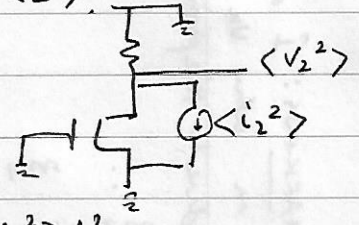 <V₂²>
<i₂²>